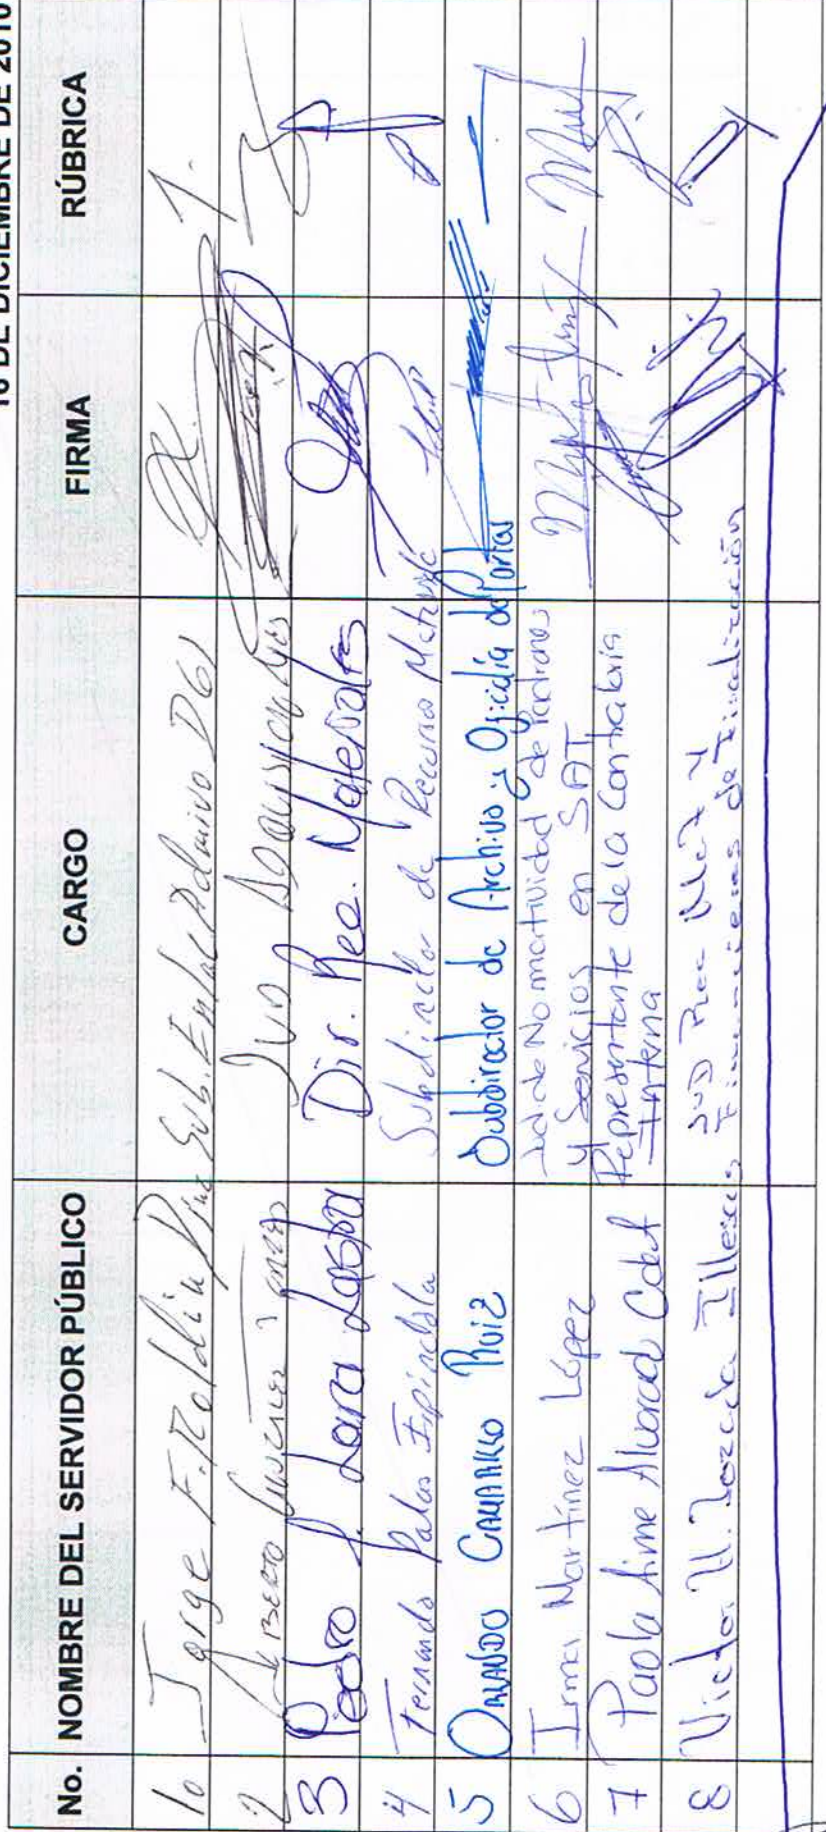 DE DICIEMBRE DE 2016
No. NOMBRE DEL SERVIDOR PÚBLICO CARGO FIRMA RÚBRICA
1o Jorge F. Roldán Sub. Enlac Admivo DGI
2 ALBERTO JUD Adquisiciones
3 Pedro P. Lara Lastra Dir. Rec. Materiales
4 Fernando Palas Espindola Subdirector de Recursos
5 ORLANDO CAMARILLO Ruiz Subdirector de Archivo y Oficialía de Partes
6 Irma Martínez López Jud de Normatividad de Padrones
y Servicios en SAT
7 Paola Aime Alvarado Representante de la Contraloria
Interna
8 Victor H. Illescas JUD Rec Mat y
Financieros de Fiscalización